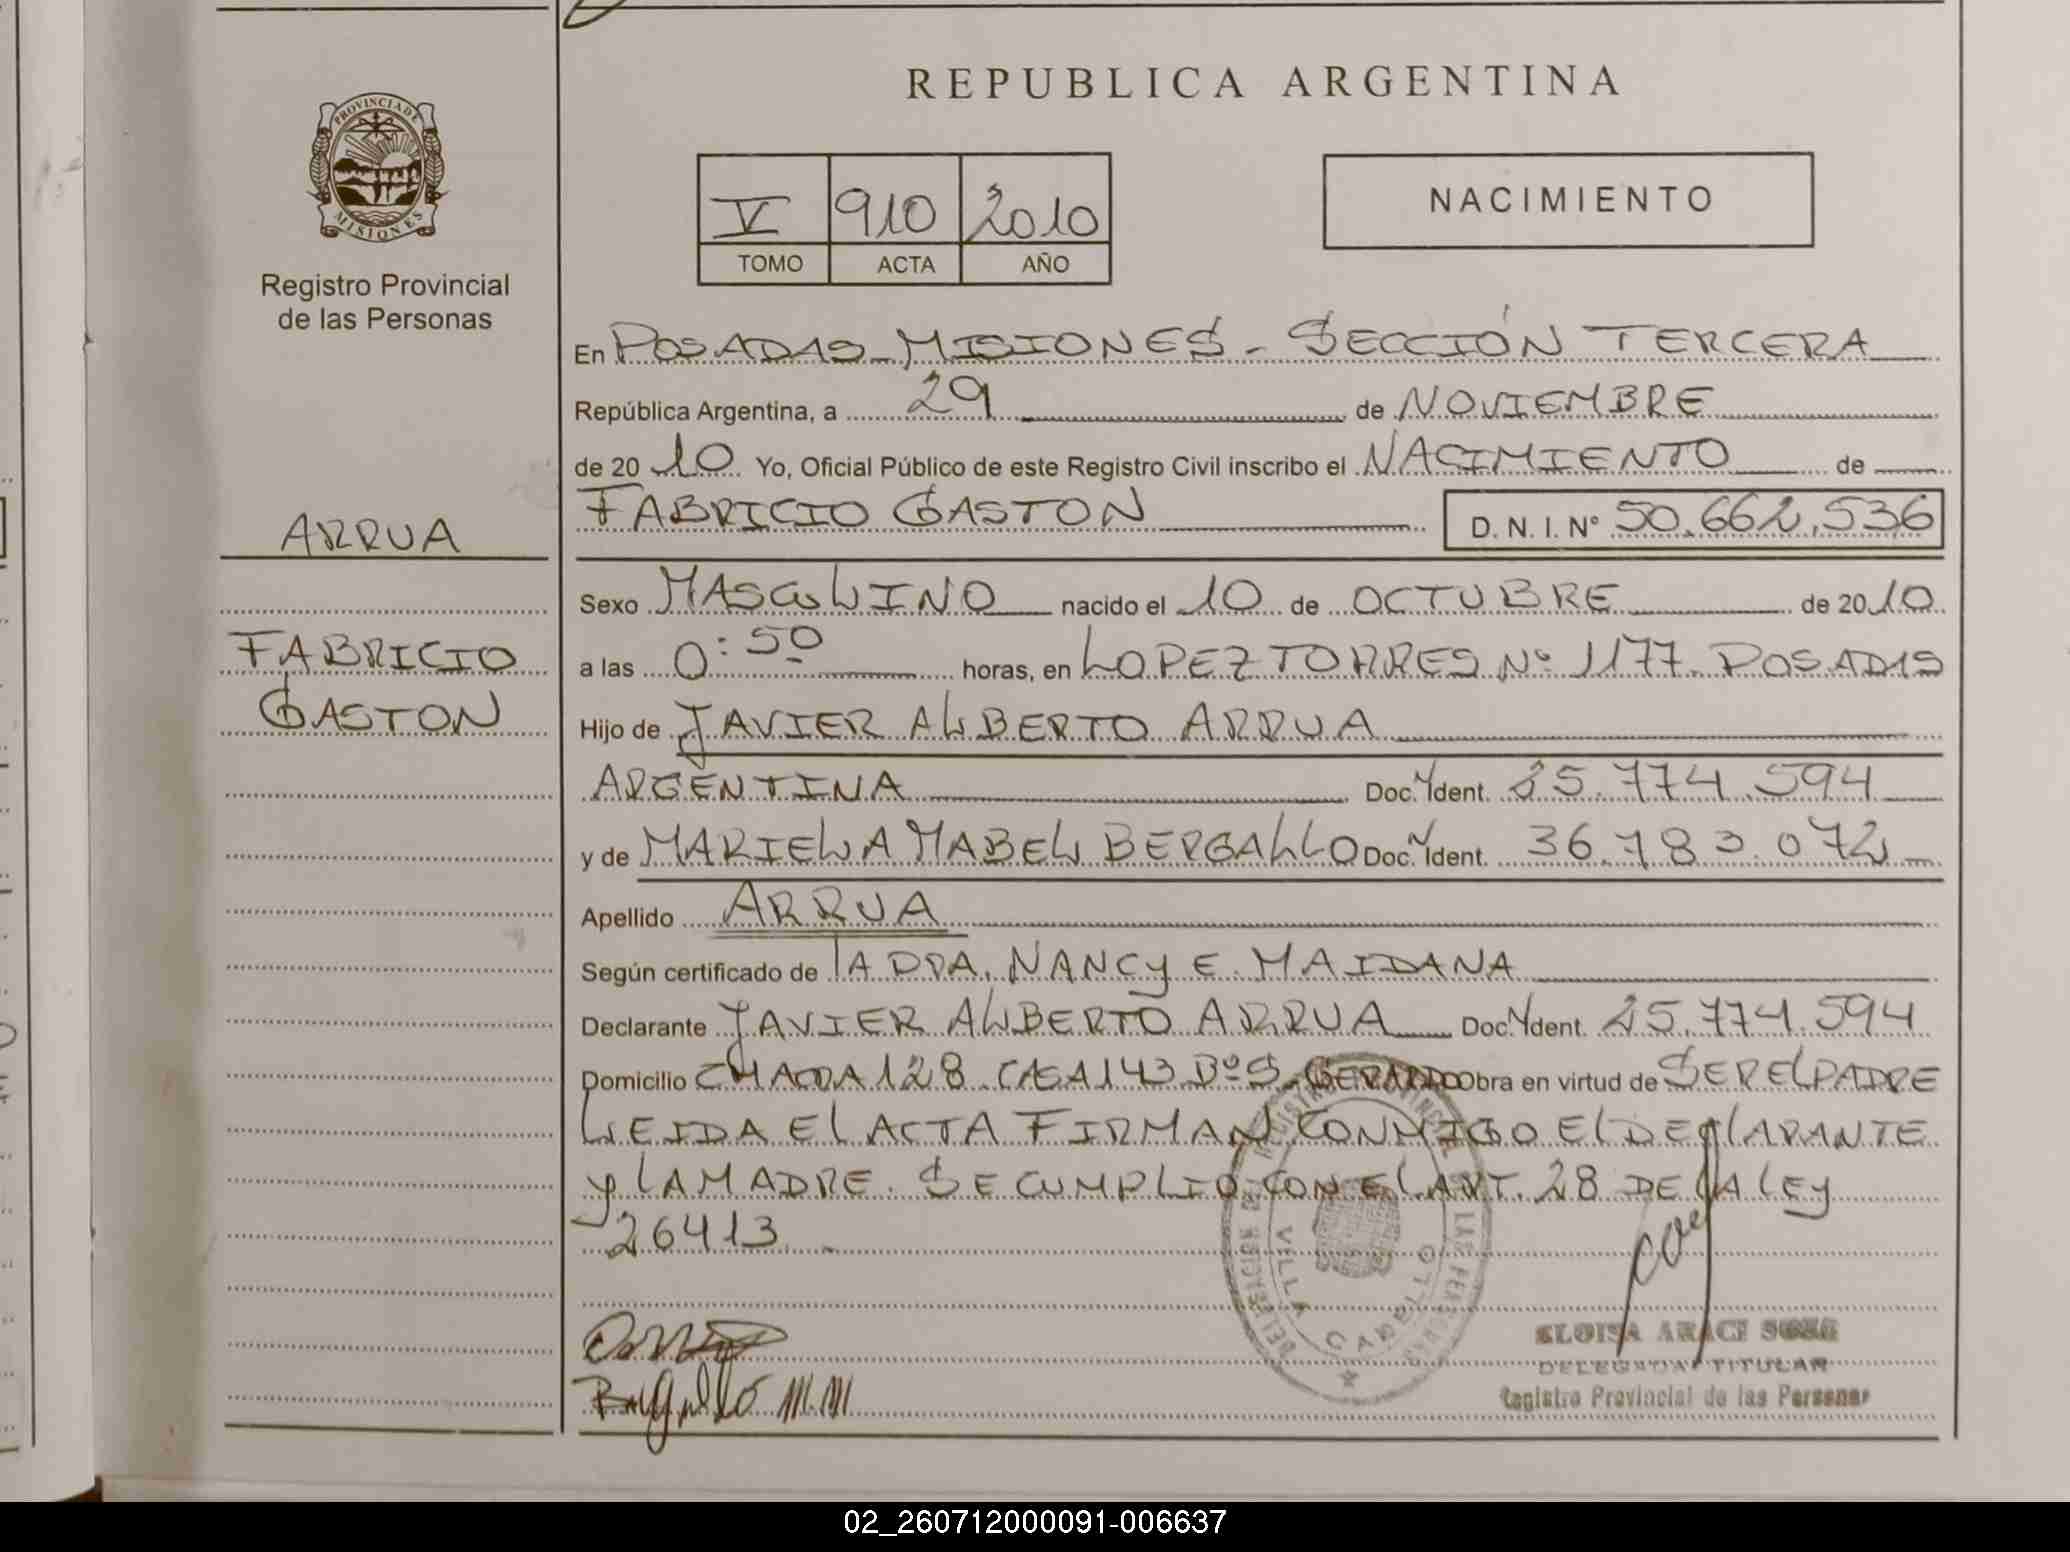 REPUBLICA ARGENTINA
PROVINCIA DE
MISIONES
Registro Provincial
de las Personas
V 910 2010
TOMO ACTA AÑO
NACIMIENTO
En POSADAS MISIONES - SECCIÓN TERCERA
República Argentina, a 29 de NOVIEMBRE
de 2010 Yo, Oficial Público de este Registro Civil inscribo el NACIMIENTO de
FABRICIO GASTON D. N. I. N° 50.662.536
ARRUA
Sexo MASCULINO nacido el 10 de OCTUBRE de 2010
FABRICIO
GASTON
a las 0:50 horas, en LOPEZ TORRES Nº 1177. POSADAS
Hijo de JAVIER ALBERTO ARRUA
ARGENTINA Doc. Ident. 25.774.594
y de MARIELA MABEL BERGALLO Doc. Ident. 36.783.072
Apellido ARRUA
Según certificado de lA DRA. NANCY E. MAIDANA
Declarante JAVIER ALBERTO ARRUA Doc. Ident. 25.774.594
Domicilio CHACRA 128 CASA 143 Bº S. GERARDO Obra en virtud de SER El PADRE
LEIDA El ACTA FIRMAN CONMIGO El DEClARANTE
y lA MADRE. SE CUMPLIO CON El ART. 28 DE lA lEy
26413
DELEGACION DEL REGISTRO PROVINCIAL DE LAS PERSONAS
VILLA CABELLO
Bergallo M.M
ELOISA ARACI SOSA
DELEGADA TITULAR
Registro Provincial de las Personas
02_260712000091-006637